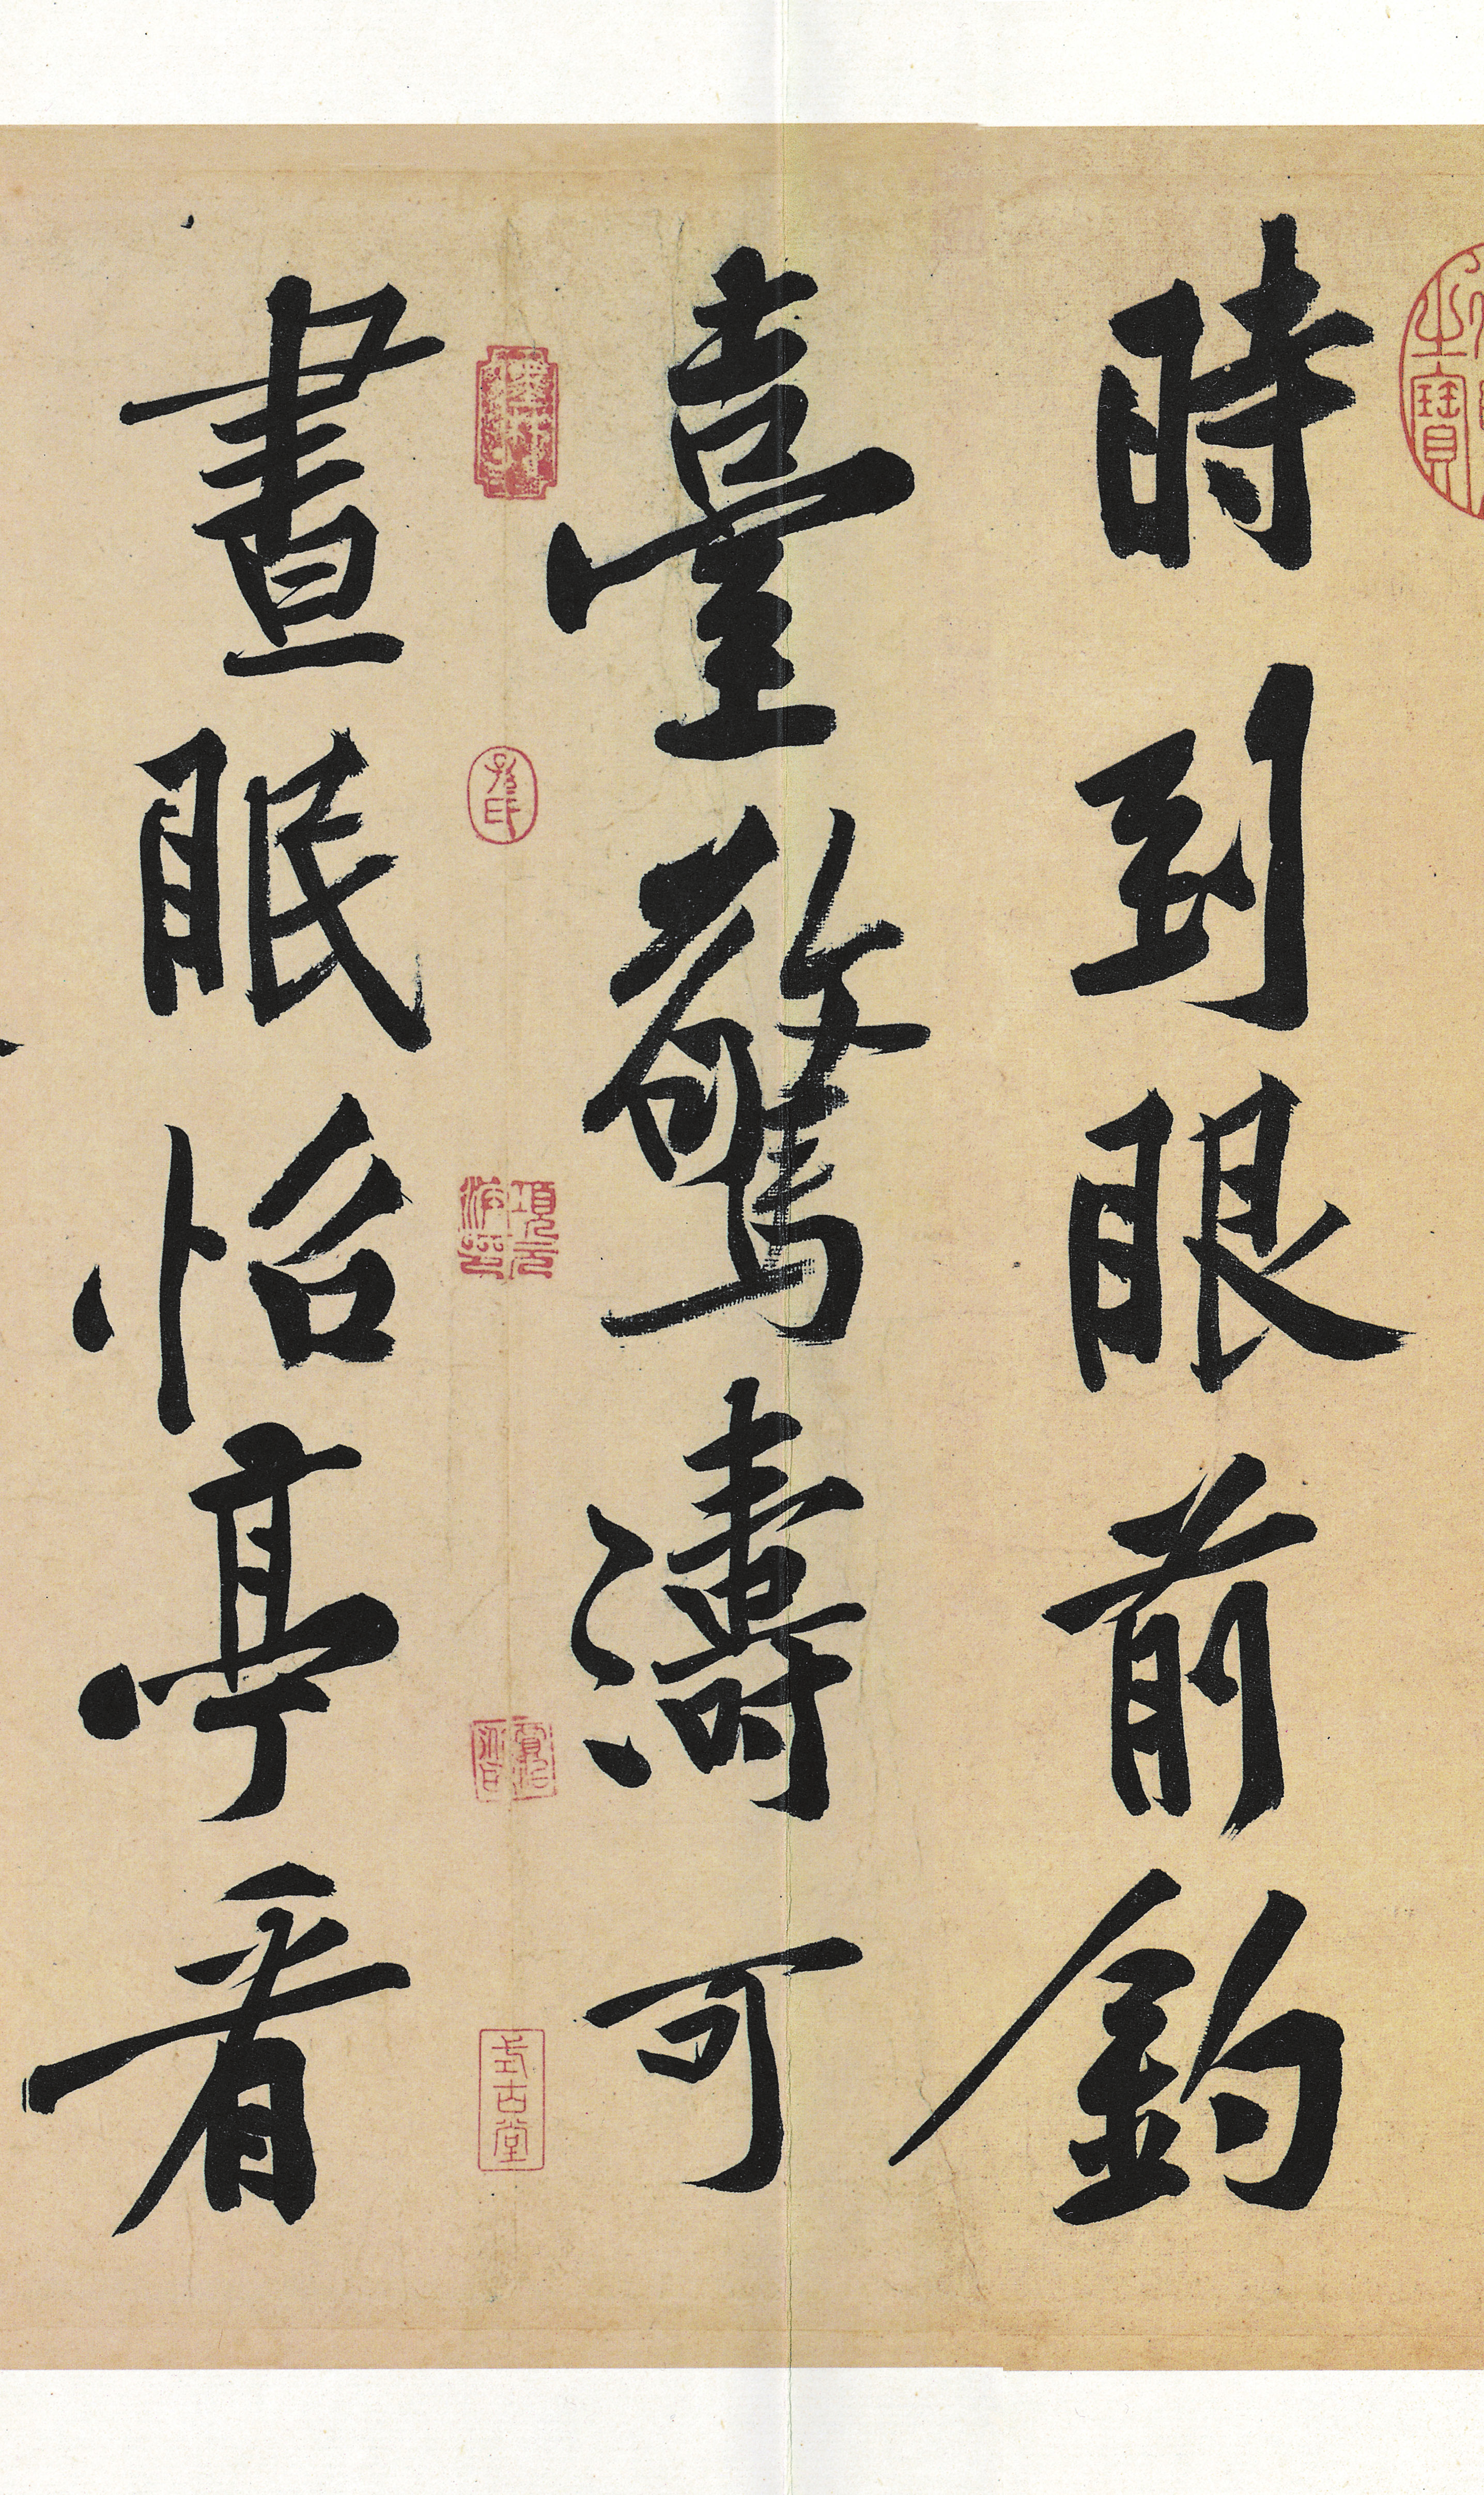 時到眼前釣
臺驚濤可
晝眠怡亭看
式古堂